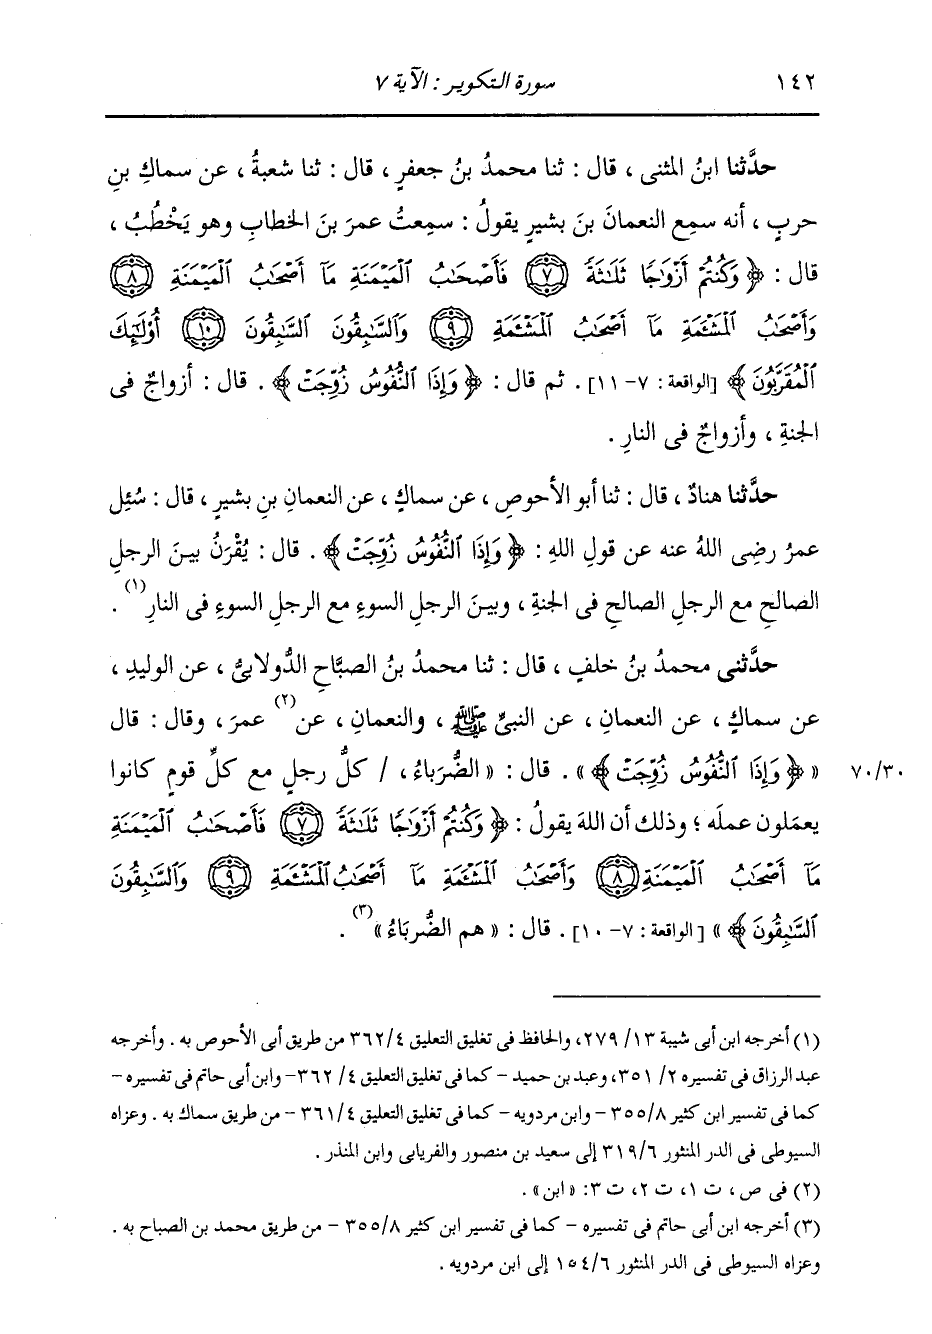 ١٤٢ سورة التكوير : الآية ٧
حدَّثنا ابنُ المثنى ، قال : ثنا محمدُ بنُ جعفرٍ ، قال : ثنا شعبةُ ، عن سماكِ بنِ
حربٍ ، أنه سمِع النعمانَ بنَ بشيرٍ يقولُ : سمِعتُ عمرَ بنَ الخطابِ وهو يَخْطُبُ ،
قال : ﴿ وَكُنتُمْ أَزْوَٰجًا ثَلَٰثَةً ﴿٧﴾ فَأَصْحَٰبُ ٱلْمَيْمَنَةِ مَآ أَصْحَٰبُ ٱلْمَيْمَنَةِ ﴿٨﴾
وَأَصْحَٰبُ ٱلْمَشْـَٔمَةِ مَآ أَصْحَٰبُ ٱلْمَشْـَٔمَةِ ﴿٩﴾ وَٱلسَّٰبِقُونَ ٱلسَّٰبِقُونَ ﴿١٠﴾ أُوْلَٰٓئِكَ
ٱلْمُقَرَّبُونَ ﴾ [الواقعة : ٧- ١١] . ثم قال : ﴿ وَإِذَا ٱلنُّفُوسُ زُوِّجَتْ ﴾ . قال : أزواجٌ فى
الجنةِ ، وأزواجٌ فى النارِ .
حدَّثنا هنادٌ ، قال : ثنا أبو الأحوصِ ، عن سماكٍ ، عن النعمانِ بنِ بشيرٍ ، قال : سُئِل
عمرُ رضِى اللهُ عنه عن قولِ اللهِ : ﴿ وَإِذَا ٱلنُّفُوسُ زُوِّجَتْ ﴾ . قال : يُقْرَنُ بينَ الرجلِ
الصالحِ مع الرجلِ الصالحِ فى الجنةِ ، وبينَ الرجلِ السوءِ مع الرجلِ السوءِ فى النارِ(١) .
حدَّثنى محمدُ بنُ خلفٍ ، قال : ثنا محمدُ بنُ الصبَّاحِ الدُّولابىُّ ، عن الوليدِ ،
عن سماكٍ ، عن النعمانِ ، عن النبىِّ ﷺ ، والنعمانِ ، عن(٢) عمرَ ، وقال : قال
« ﴿ وَإِذَا ٱلنُّفُوسُ زُوِّجَتْ ﴾» . قال : «الضُّرَباءُ ، / كلُّ رجلٍ مع كلِّ قومٍ كانوا ٧٠/٣٠
يعمَلون عملَه ؛ وذلك أن اللهَ يقولُ : ﴿ وَكُنتُمْ أَزْوَٰجًا ثَلَٰثَةً ﴿٧﴾ فَأَصْحَٰبُ ٱلْمَيْمَنَةِ
مَآ أَصْحَٰبُ ٱلْمَيْمَنَةِ ﴿٨﴾ وَأَصْحَٰبُ ٱلْمَشْـَٔمَةِ مَآ أَصْحَٰبُ ٱلْمَشْـَٔمَةِ ﴿٩﴾ وَٱلسَّٰبِقُونَ
ٱلسَّٰبِقُونَ ﴾ » [الواقعة : ٧- ١٠] . قال : « هم الضُّرباءُ »(٣) .
(١) أخرجه ابن أبى شيبة ١٣/ ٢٧٩، والحافظ فى تغليق التعليق ٣٦٢/٤ من طريق أبى الأحوص به . وأخرجه
عبد الرزاق فى تفسيره ٢/ ٣٥١، وعبد بن حميد – كما فى تغليق التعليق ٤/ ٣٦٢– وابن أبى حاتم فى تفسيره –
كما فى تفسير ابن كثير ٣٥٥/٨ – وابن مردويه – كما فى تغليق التعليق ٣٦١/٤ – من طريق سماك به . وعزاه
السيوطى فى الدر المنثور ٣١٩/٦ إلى سعيد بن منصور والفريابى وابن المنذر .
(٢) فى ص ، ت ١، ت ٢، ت ٣: «ابن» .
(٣) أخرجه ابن أبى حاتم فى تفسيره – كما فى تفسير ابن كثير ٣٥٥/٨ – من طريق محمد بن الصباح به .
وعزاه السيوطى فى الدر المنثور ١٥٤/٦ إلى ابن مردويه .